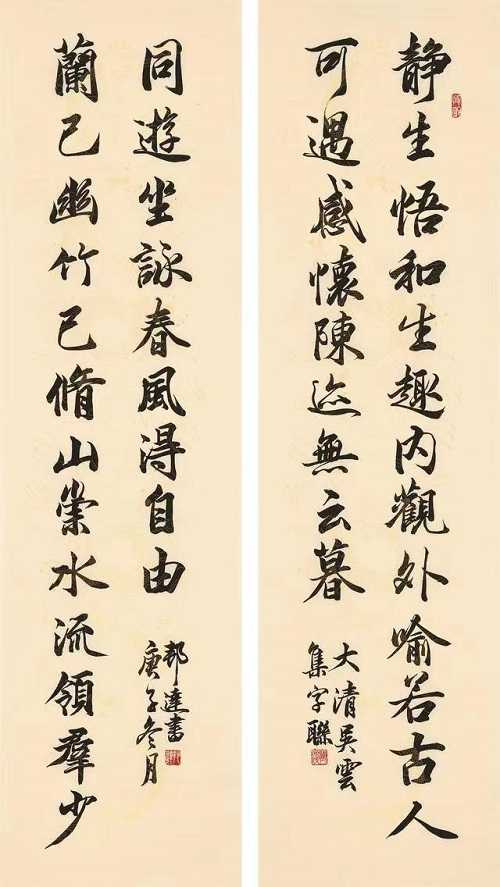 静生悟和生趣内觀外喻若古人
可遇感懷陳迹無云暮
大清吳雲
集字聯
蘭已幽竹已脩山崇水流領羣少
同遊坐詠春風得自由
庚子冬月
邦達書